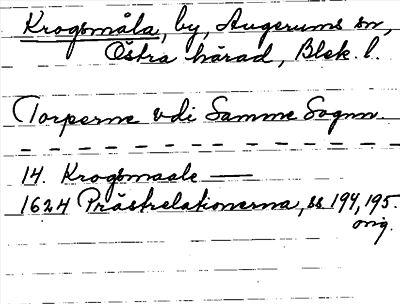 Krogsmåla, by, Augerums sn,
Östra härad, Blek. l.
Torperne vdi Samme Sognn.
14. Krogsmaale —
1624 Prästrelationerna, ss 194, 195.
orig.